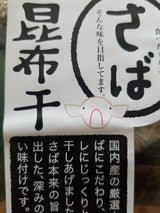 さば
そんな味を目指してます。
昆布干
国内産の厳選
ばにこだわり、
しにじっくりと
干しあげました
さば本来の旨
出した、深みの
い味付けです。